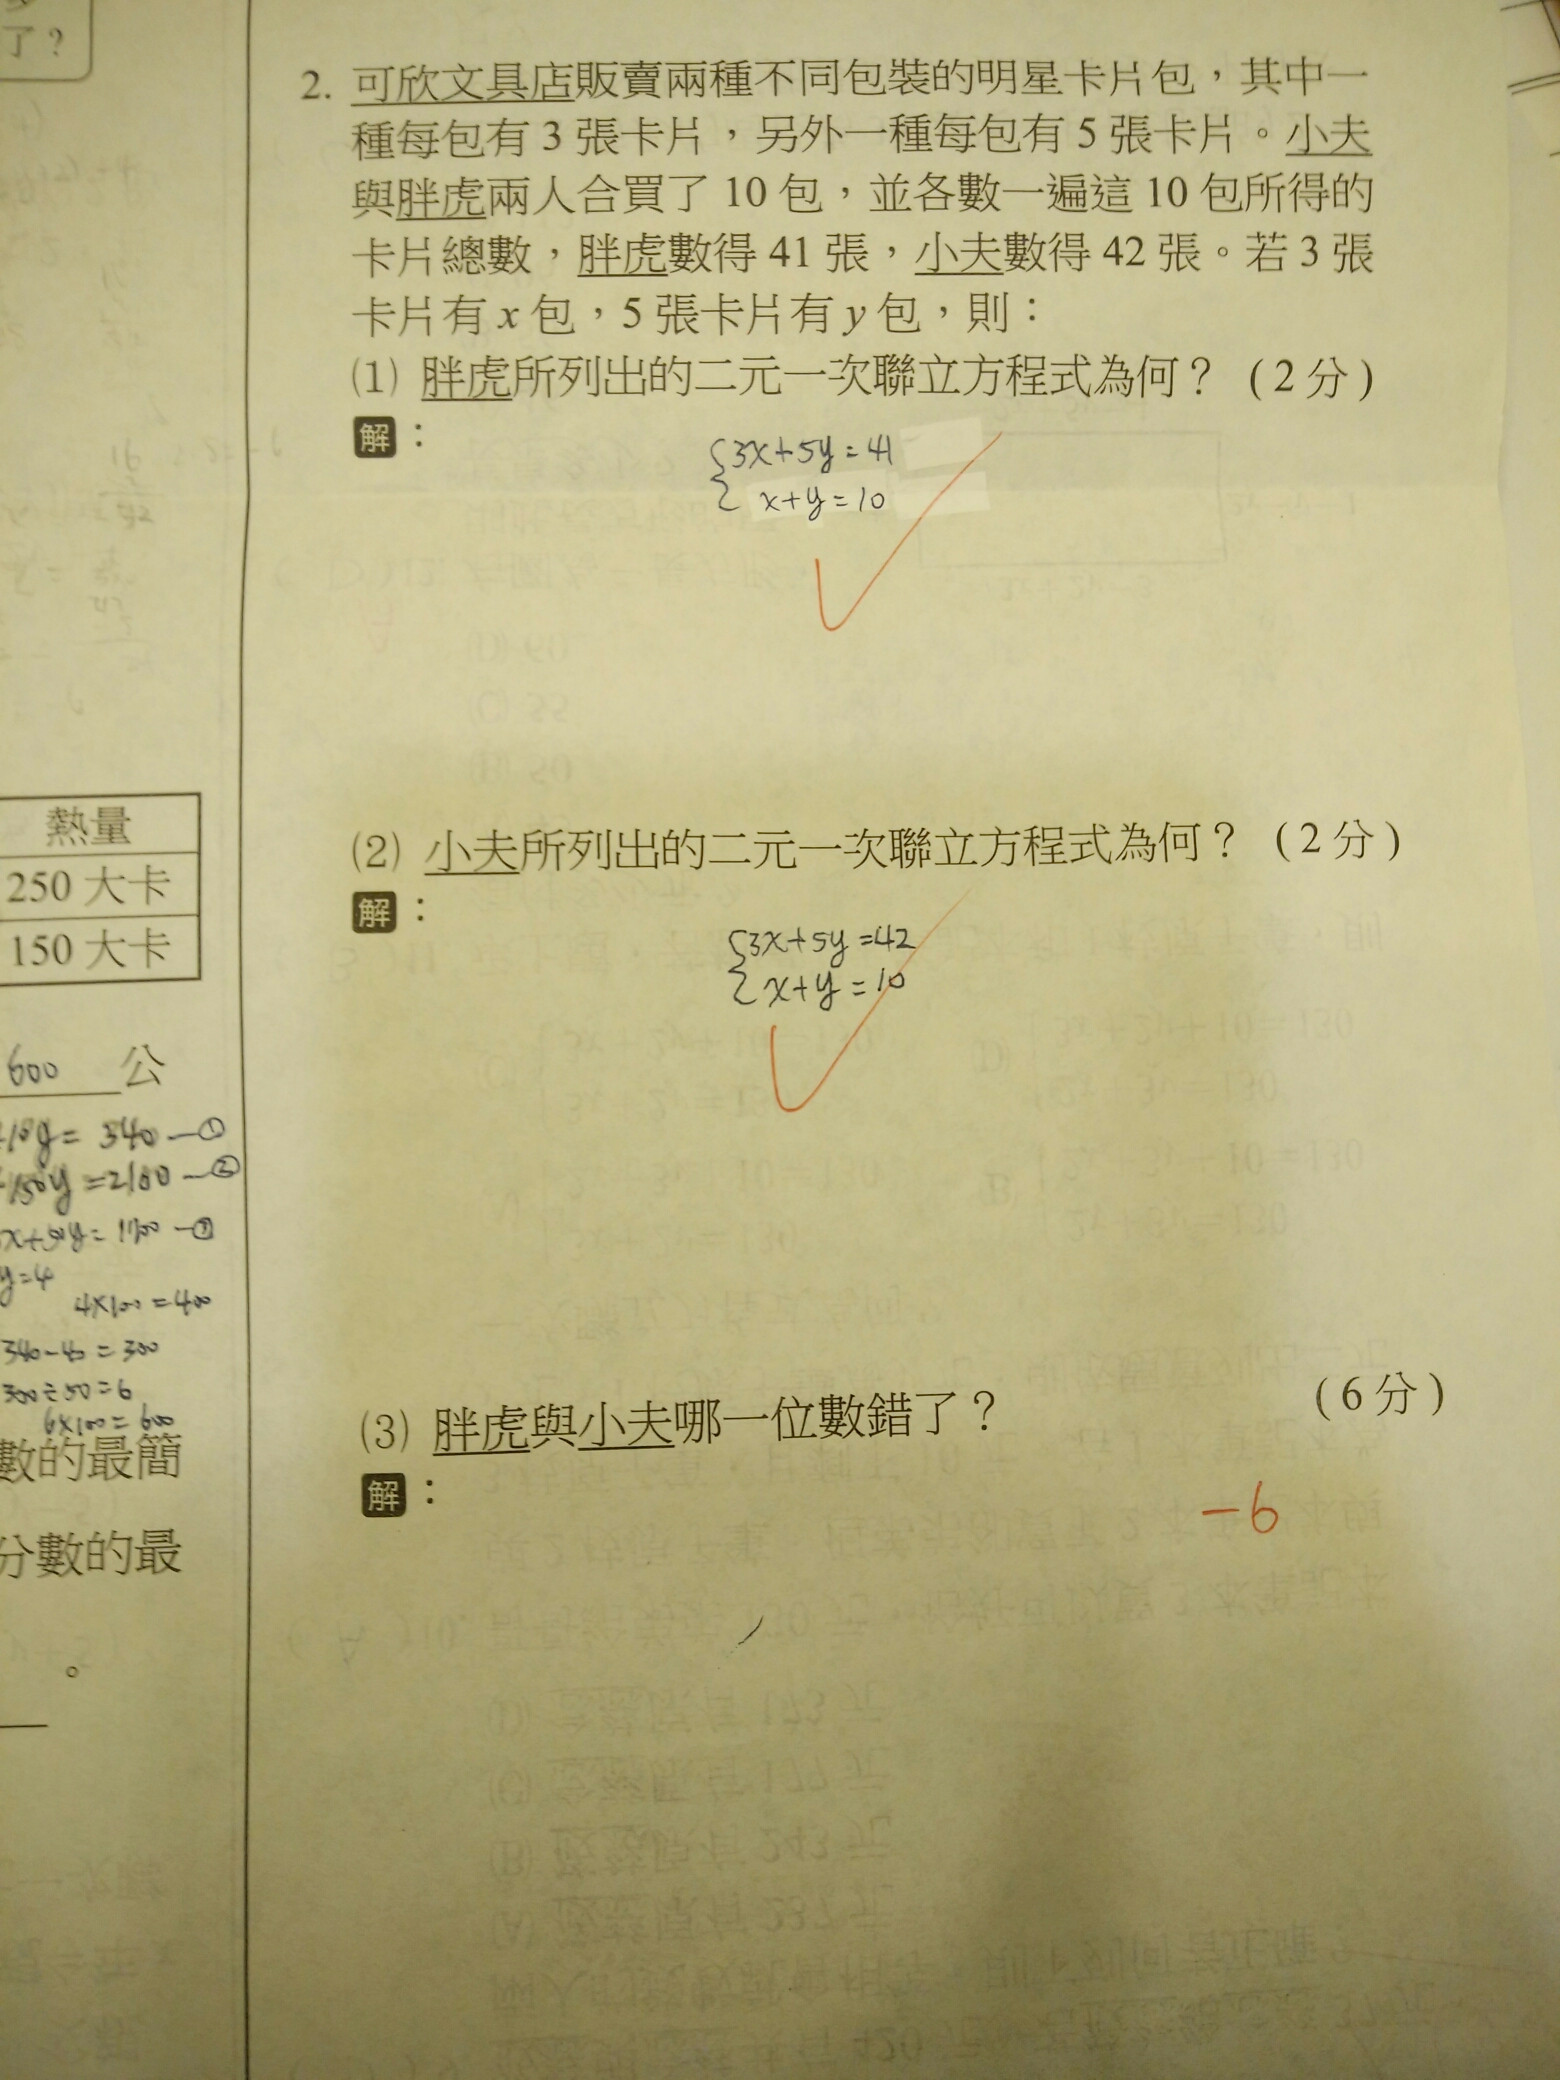 了？
2. 可欣文具店販賣兩種不同包裝的明星卡片包，其中一
種每包有 3 張卡片，另外一種每包有 5 張卡片。小夫
與胖虎兩人合買了 10 包，並各數一遍這 10 包所得的
卡片總數，胖虎數得 41 張，小夫數得 42 張。若 3 張
卡片有 x 包，5 張卡片有 y 包，則：
(1) 胖虎所列出的二元一次聯立方程式為何？ (2分)
解：
{3x+5y=41
x+y=10
(2) 小夫所列出的二元一次聯立方程式為何？ (2分)
解：
{3x+5y=42
x+y=10
(3) 胖虎與小夫哪一位數錯了？ (6分)
解：
-6
熱量
250 大卡
150 大卡
600 公
+10y=340—①
+150y=2100—②
y=4
4×100=400
340-40=300
300÷50=6
6×100=600
數的最簡
分數的最
。